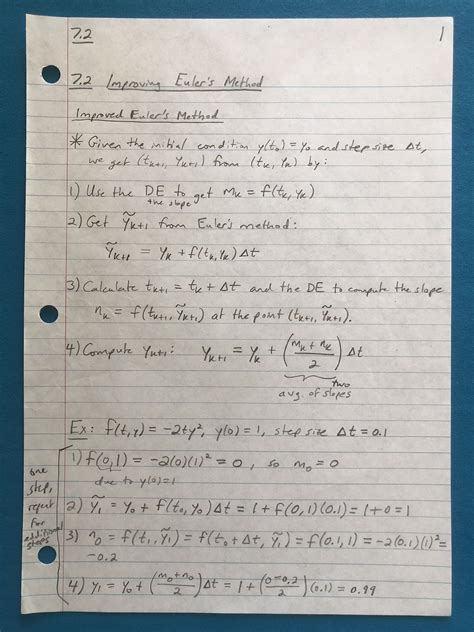 7.2
1
7.2 Improving Euler's Method
Improved Euler's Method
* Given the initial condition y(t₀) = y₀ and step size Δt,
we get (tₖ₊₁, yₖ₊₁) from (tₖ, yₖ) by:
1) Use the DE to get mₖ = f(tₖ, yₖ)
the slope
2) Get ỹₖ₊₁ from Euler's method:
ỹₖ₊₁ = yₖ + f(tₖ, yₖ) Δt
3) Calculate tₖ₊₁ = tₖ + Δt and the DE to compute the slope
nₖ = f(tₖ₊₁, ỹₖ₊₁) at the point (tₖ₊₁, ỹₖ₊₁).
4) Compute yₖ₊₁: yₖ₊₁ = yₖ + ((mₖ + nₖ)/2) Δt
avg. of two slopes
Ex: f(t,y) = -2ty², y(0) = 1, step size Δt = 0.1
one step, repeat for additional steps
1) f(0,1) = -2(0)(1)² = 0, so m₀ = 0
due to y(0)=1
2) ỹ₁ = y₀ + f(t₀, y₀)Δt = 1 + f(0,1)(0.1) = 1+0 = 1
3) n₀ = f(t₁, ỹ₁) = f(t₀ + Δt, ỹ₁) = f(0.1, 1) = -2(0.1)(1)² =
-0.2
4) y₁ = y₀ + ((m₀+n₀)/2)Δt = 1 + ((0-0.2)/2)(0.1) = 0.99